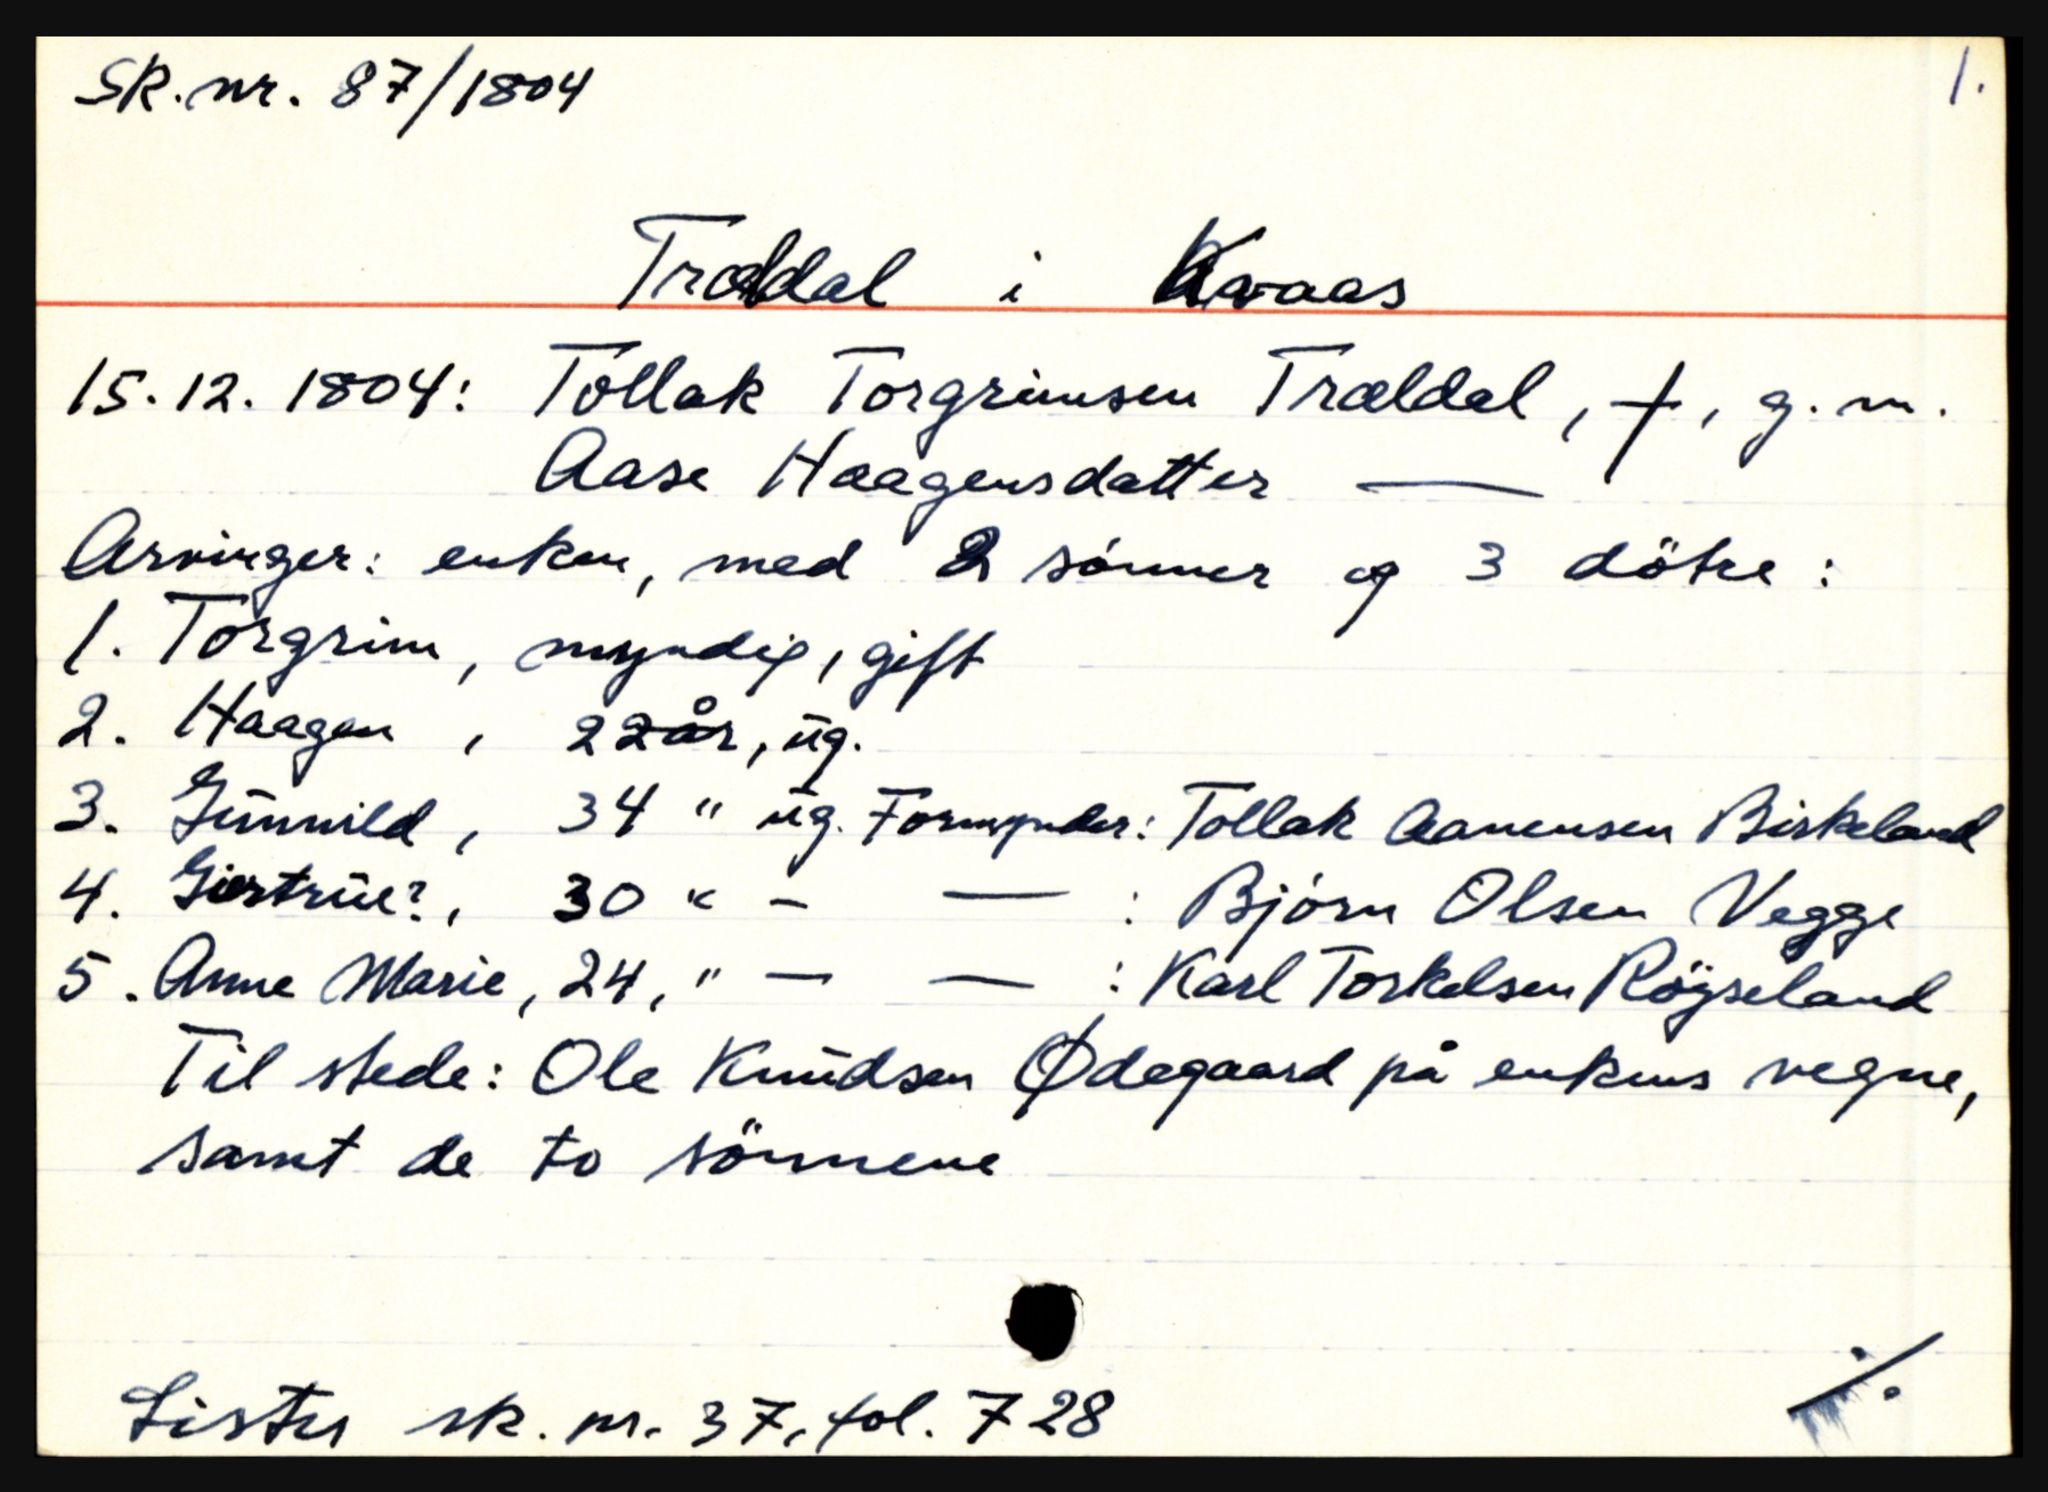 Sk. nr. 87/1804
1.
Trældal i Kvaas
15.12.1804: Tollak Torgrimsen Trældal, †, g. m.
Aase Haagensdatter —
Arvinger: enken, med 2 sønner og 3 døtre:
1. Torgrim, myndig, gift
2. Haagen, 22 år, ug.
3. Gunnild, 34 " ug. Formynder: Tollak Aanensen Birkeland
4. Giertrue?, 30 " - — : Bjørn Olsen Vegge
5. Anne Marie, 24, " — — : Karl Torkelsen Røyseland
Til stede: Ole Knudsen Ødegaard på enkens vegne,
samt de to sønnene
Lister sk. nr. 37, fol. 728
./.